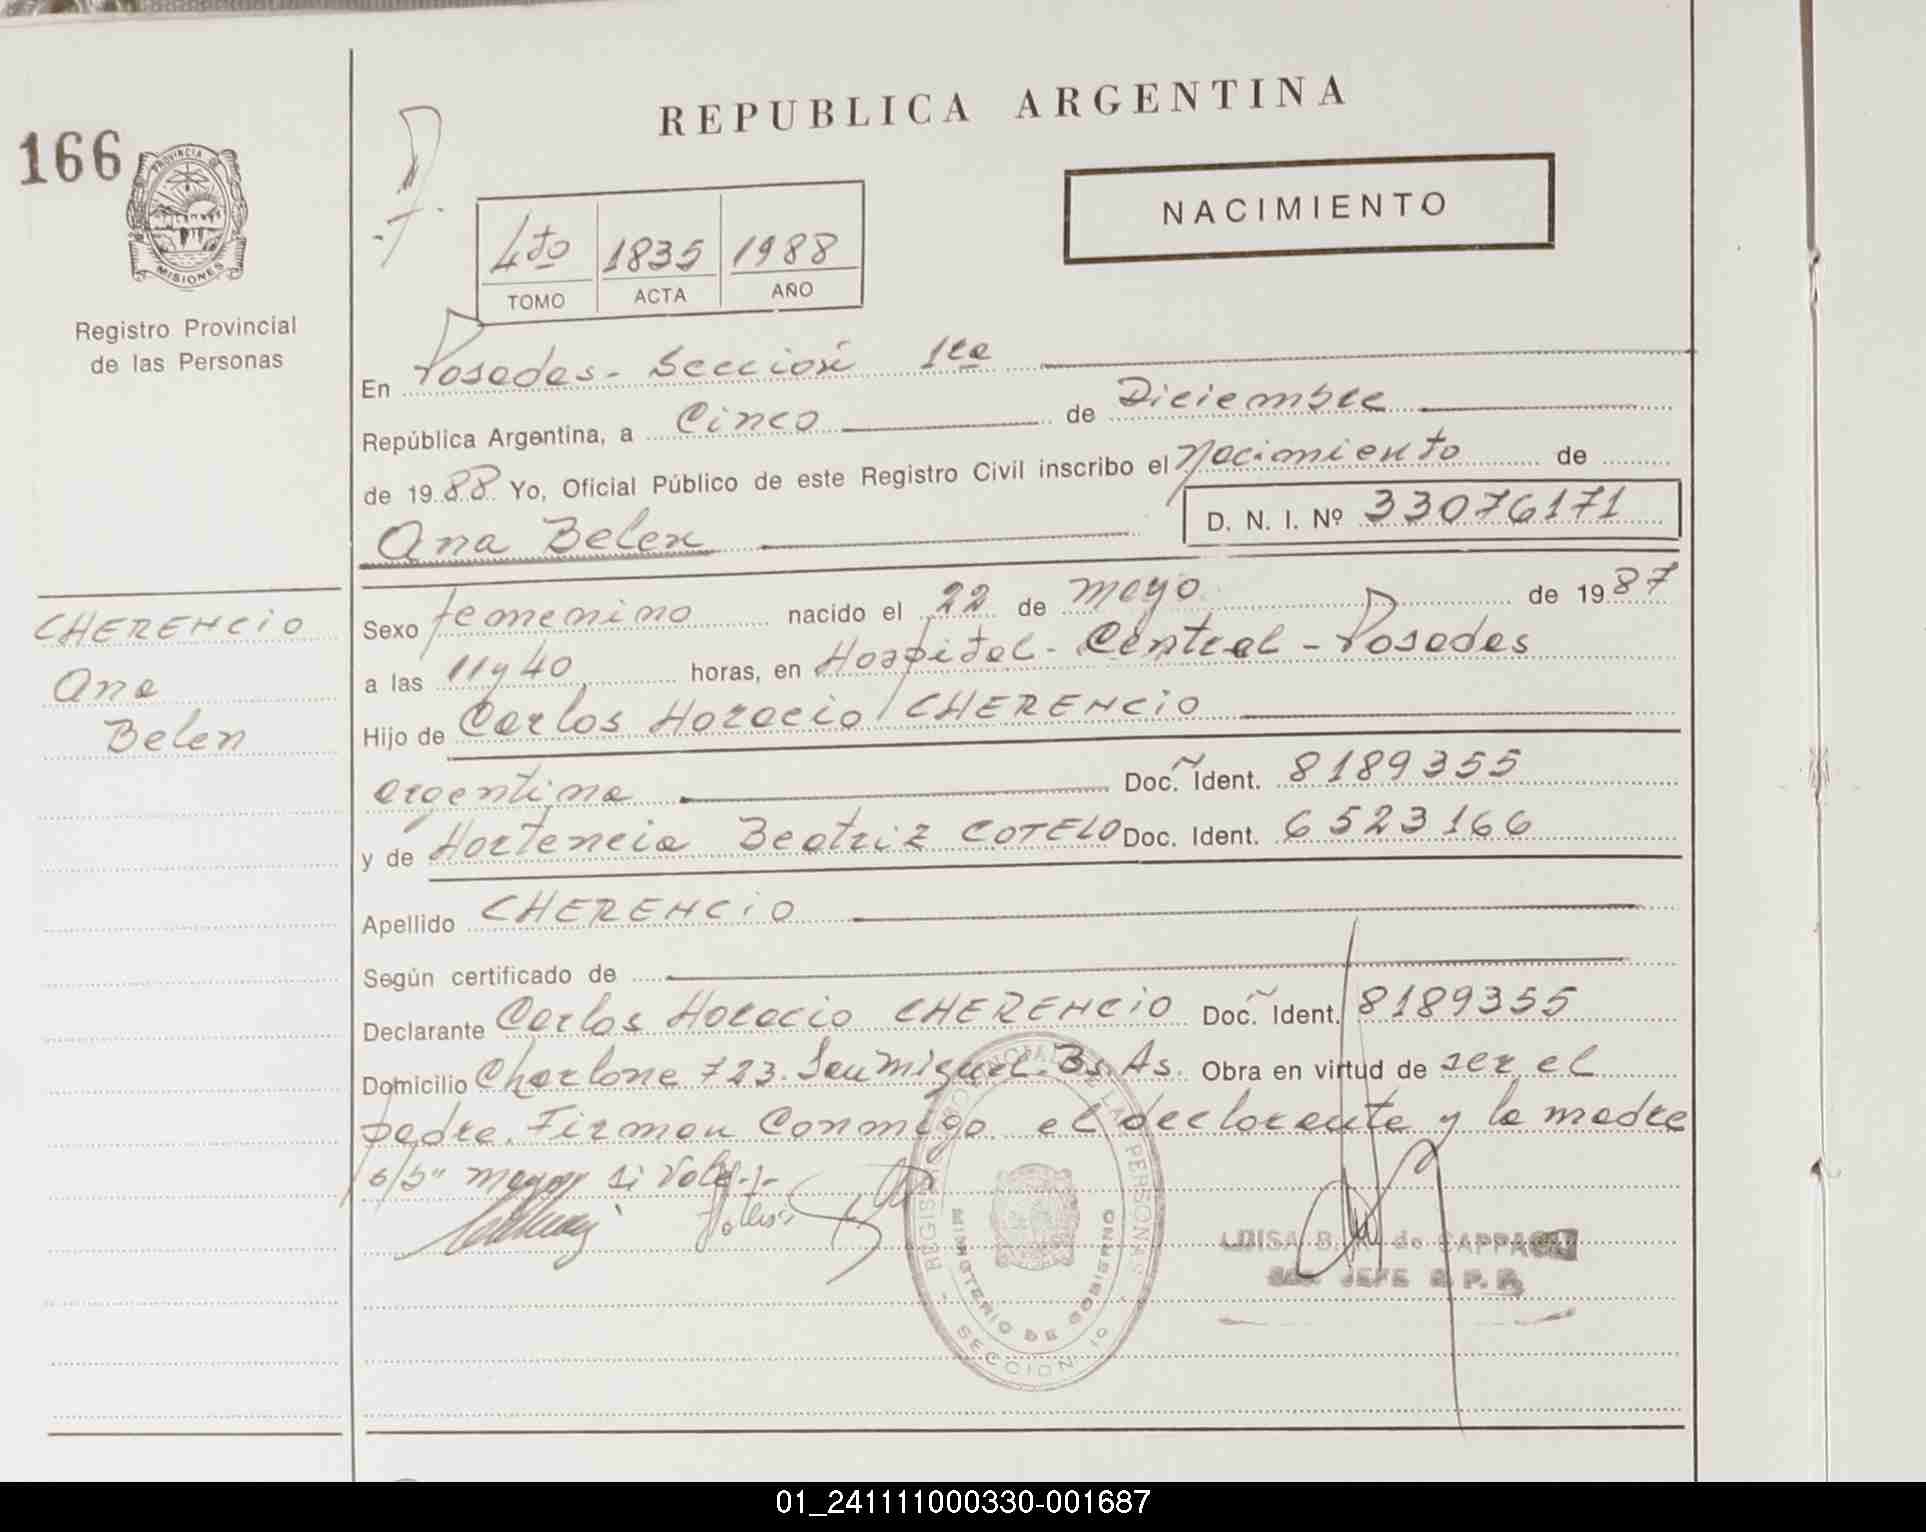 REPUBLICA ARGENTINA
166
PROVINCIA DE
MISIONES
NACIMIENTO
4to 1835 1988
TOMO ACTA AÑO
Registro Provincial
de las Personas
En Posadas - Sección 1ra
República Argentina, a Cinco de Diciembre
de 1988 Yo, Oficial Público de este Registro Civil inscribo el nacimiento de
Ana Belen D. N. I. Nº 33076171
CHERENCIO
Ana
Belen
Sexo femenino nacido el 22 de mayo de 1987
a las 11 y 40 horas, en Hospital - Central - Posadas
Hijo de Carlos Horacio CHERENCIO
argentina Doc. Ident. 8189355
y de Hortencia Beatriz COTELO Doc. Ident. 6523166
Apellido CHERENCIO
Según certificado de
Declarante Carlos Horacio CHERENCIO Doc. Ident. 8189355
Domicilio Charlone 723. San Miguel. Bs. As. Obra en virtud de ser el
padre. Firman Conmigo el declarante y la madre
s/b" mayor si Vale.-
REGISTRO PROVINCIAL DE LAS PERSONAS
MINISTERIO DE GOBIERNO
SECCION 1º
LUISA B. de CAPPA
JEFE R. P. P.
01_241111000330-001687